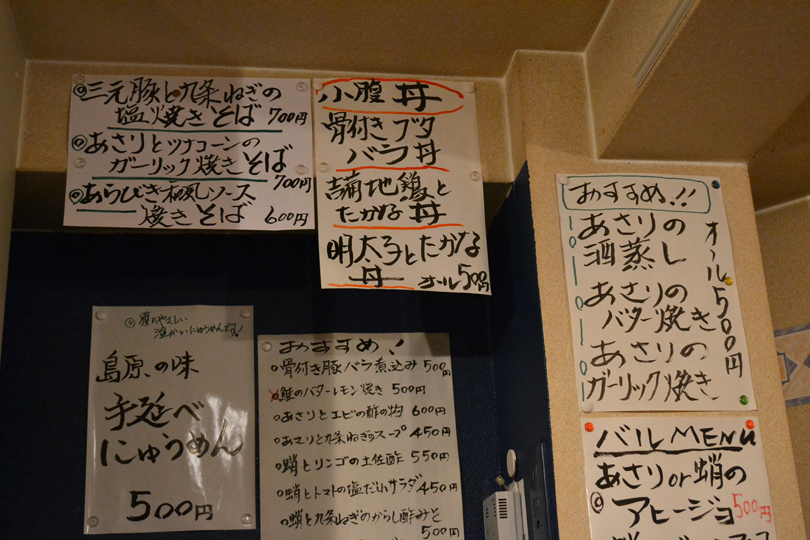 ◎三元豚と九条ねぎの
塩焼きそば 700円
◎あさりとツナコーンの
ガーリック焼きそば
700円
◎あらびき和風ソース
焼きそば 600円
小腹丼
骨付きブタ
バラ丼
地鶏と
たかな丼
明太子とたかな
丼 オール500円
おすすめ!!
あさりの
酒蒸し
あさりの
バター焼き
あさりの
ガーリック焼き
オール500円
島原の味
手延べ
にゅうめん
500円
おすすめ!!
骨付き豚バラ煮込み 500円
鮭のバターレモン焼き 500円
あさりとエビの酢の物 600円
あさりと九条ねぎのスープ 450円
蛸とリンゴの土佐酢 550円
蛸とトマトの塩だれサラダ 450円
蛸と九条ねぎのからし酢みそ
500円
バルMENU
あさりor蛸の
アヒージョ 500円